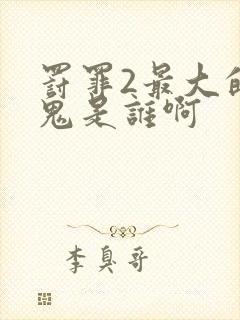 罚罪2最大的
鬼是誰啊
李臭哥